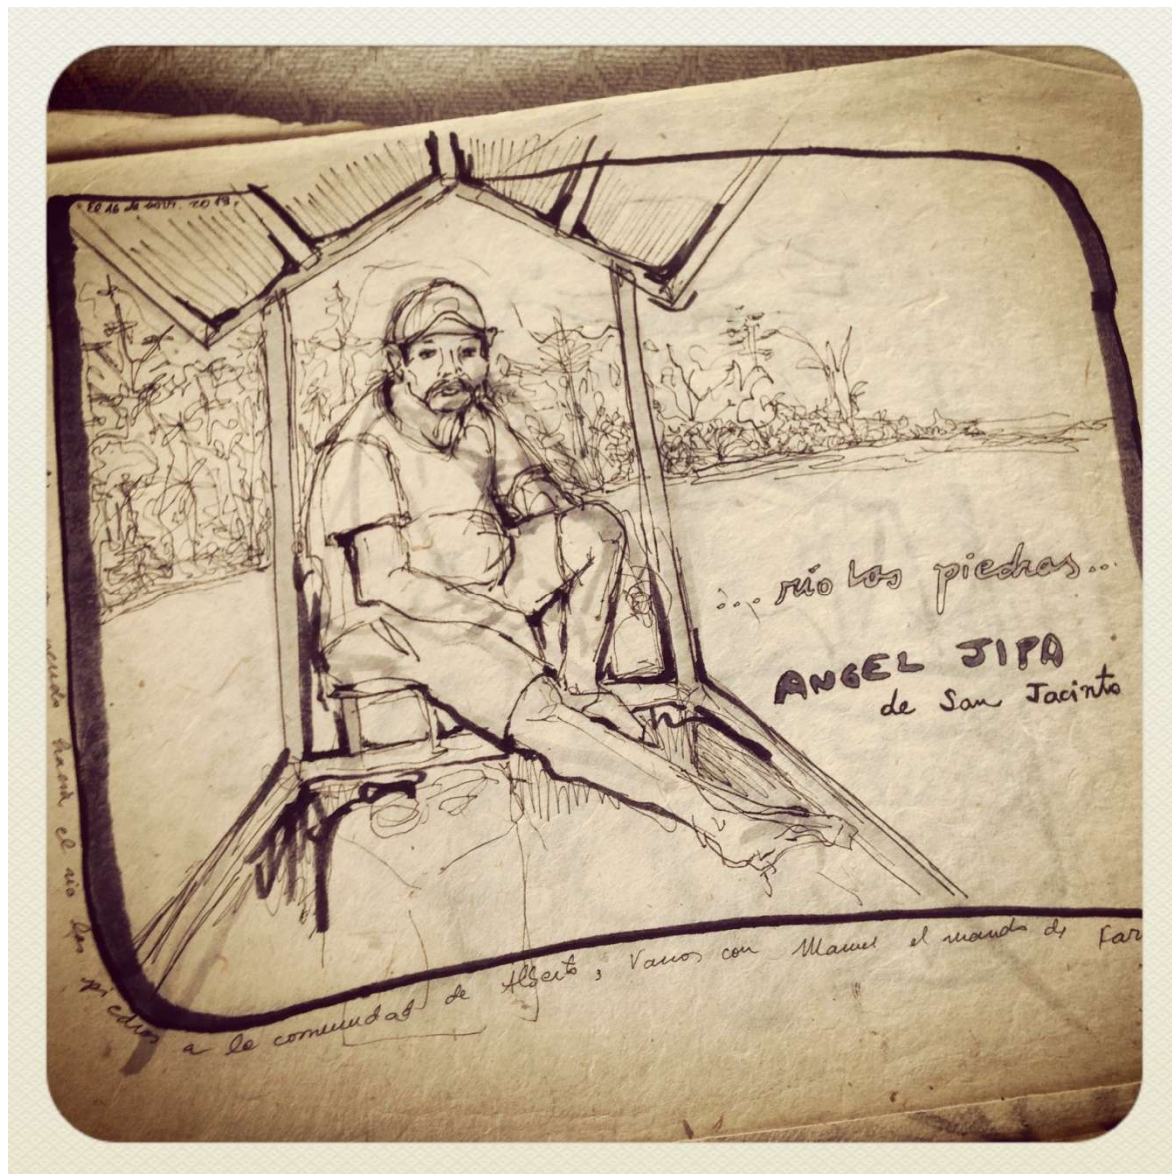 El 16 de novi. 2018.
... río los piedras...
ANGEL JIPA
de San Jacinto
hasta el rio los piedras a la comunidad de Alberto, Vamos con Manuel el marido de Kar